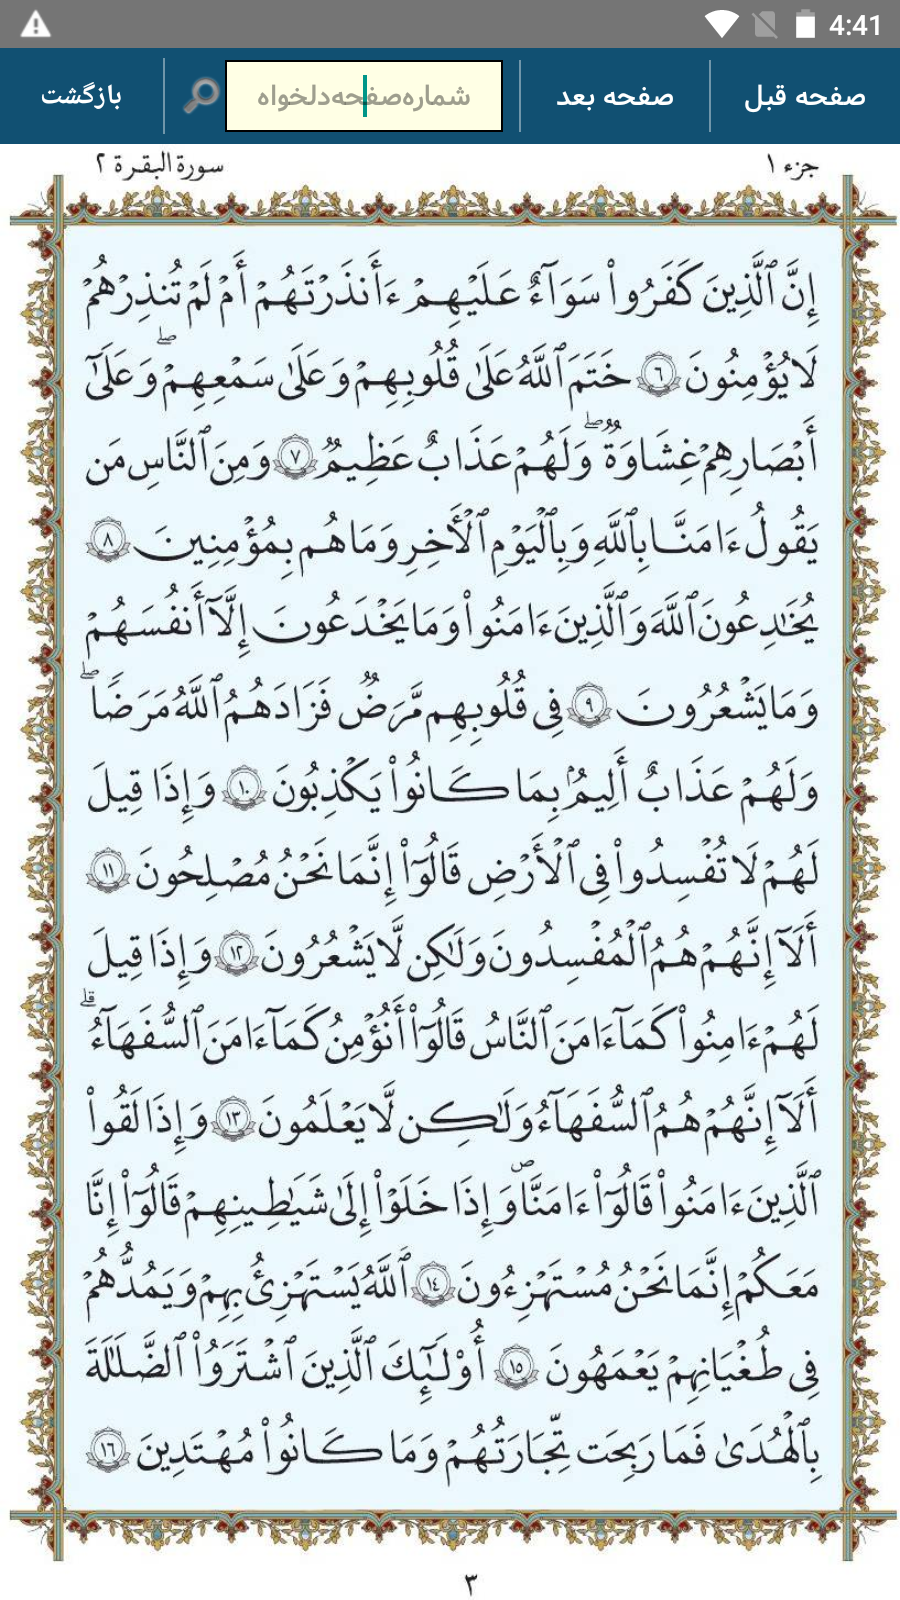 4:41
صفحه قبل
صفحه بعد
شماره‌صفحه‌دلخواه
بازگشت
جزء ١
سورة البقرة ٢
إِنَّ ٱلَّذِينَ كَفَرُوا۟ سَوَآءٌ عَلَيْهِمْ ءَأَنذَرْتَهُمْ أَمْ لَمْ تُنذِرْهُمْ
لَا يُؤْمِنُونَ ٦ خَتَمَ ٱللَّهُ عَلَىٰ قُلُوبِهِمْ وَعَلَىٰ سَمْعِهِمْ ۖ وَعَلَىٰٓ
أَبْصَـٰرِهِمْ غِشَـٰوَةٌ ۖ وَلَهُمْ عَذَابٌ عَظِيمٌ ٧ وَمِنَ ٱلنَّاسِ مَن
يَقُولُ ءَامَنَّا بِٱللَّهِ وَبِٱلْيَوْمِ ٱلْأَخِرِ وَمَا هُم بِمُؤْمِنِينَ ٨
يُخَـٰدِعُونَ ٱللَّهَ وَٱلَّذِينَ ءَامَنُوا۟ وَمَا يَخْدَعُونَ إِلَّآ أَنفُسَهُمْ
وَمَا يَشْعُرُونَ ٩ فِى قُلُوبِهِم مَّرَضٌ فَزَادَهُمُ ٱللَّهُ مَرَضًا ۖ
وَلَهُمْ عَذَابٌ أَلِيمٌۢ بِمَا كَانُوا۟ يَكْذِبُونَ ١٠ وَإِذَا قِيلَ
لَهُمْ لَا تُفْسِدُوا۟ فِى ٱلْأَرْضِ قَالُوٓا۟ إِنَّمَا نَحْنُ مُصْلِحُونَ ١١
أَلَآ إِنَّهُمْ هُمُ ٱلْمُفْسِدُونَ وَلَـٰكِن لَّا يَشْعُرُونَ ١٢ وَإِذَا قِيلَ
لَهُمْ ءَامِنُوا۟ كَمَآ ءَامَنَ ٱلنَّاسُ قَالُوٓا۟ أَنُؤْمِنُ كَمَآ ءَامَنَ ٱلسُّفَهَآءُ ۗ
أَلَآ إِنَّهُمْ هُمُ ٱلسُّفَهَآءُ وَلَـٰكِن لَّا يَعْلَمُونَ ١٣ وَإِذَا لَقُوا۟
ٱلَّذِينَ ءَامَنُوا۟ قَالُوٓا۟ ءَامَنَّا وَإِذَا خَلَوْا۟ إِلَىٰ شَيَـٰطِينِهِمْ قَالُوٓا۟ إِنَّا
مَعَكُمْ إِنَّمَا نَحْنُ مُسْتَهْزِءُونَ ١٤ ٱللَّهُ يَسْتَهْزِئُ بِهِمْ وَيَمُدُّهُمْ
فِى طُغْيَـٰنِهِمْ يَعْمَهُونَ ١٥ أُو۟لَـٰٓئِكَ ٱلَّذِينَ ٱشْتَرَوُا۟ ٱلضَّلَـٰلَةَ
بِٱلْهُدَىٰ فَمَا رَبِحَت تِّجَـٰرَتُهُمْ وَمَا كَانُوا۟ مُهْتَدِينَ ١٦
٣